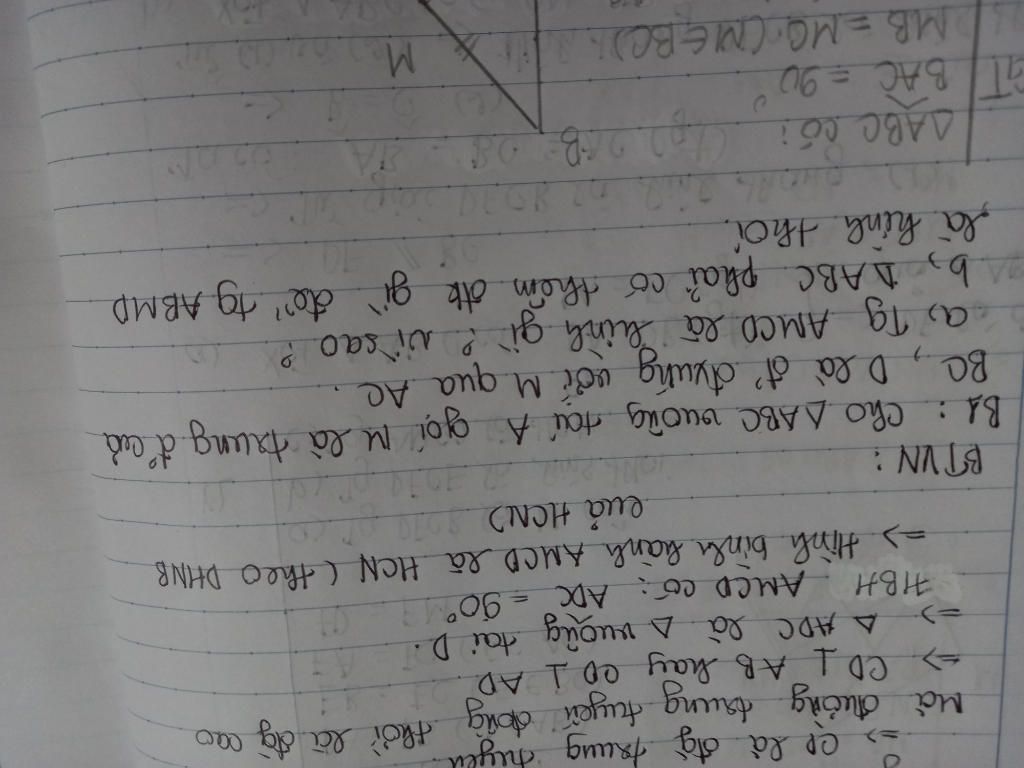 => CD là đg trung tuyến
Mà đường trung tuyến đồng thời là đg cao
=> CD ⊥ AB hay CD ⊥ AD
=> Δ ADC là Δ vuông tại D.
HBH AMCD có: ADC = 90°
=> Hình bình hành AMCD là HCN (theo DHNB
của HCN)
BTVN:
B1: Cho ΔABC vuông tại A gọi M là trung đ' của
BC, D là đ' đxứng với M qua AC.
a, Tg AMCD là hình gì? vì sao?
b, ΔABC phải có thêm đk gì để tg ABMD
là hình thoi.
ΔABC có:
GT BAC = 90°
MB = MC (M ∈ BC)
B
M